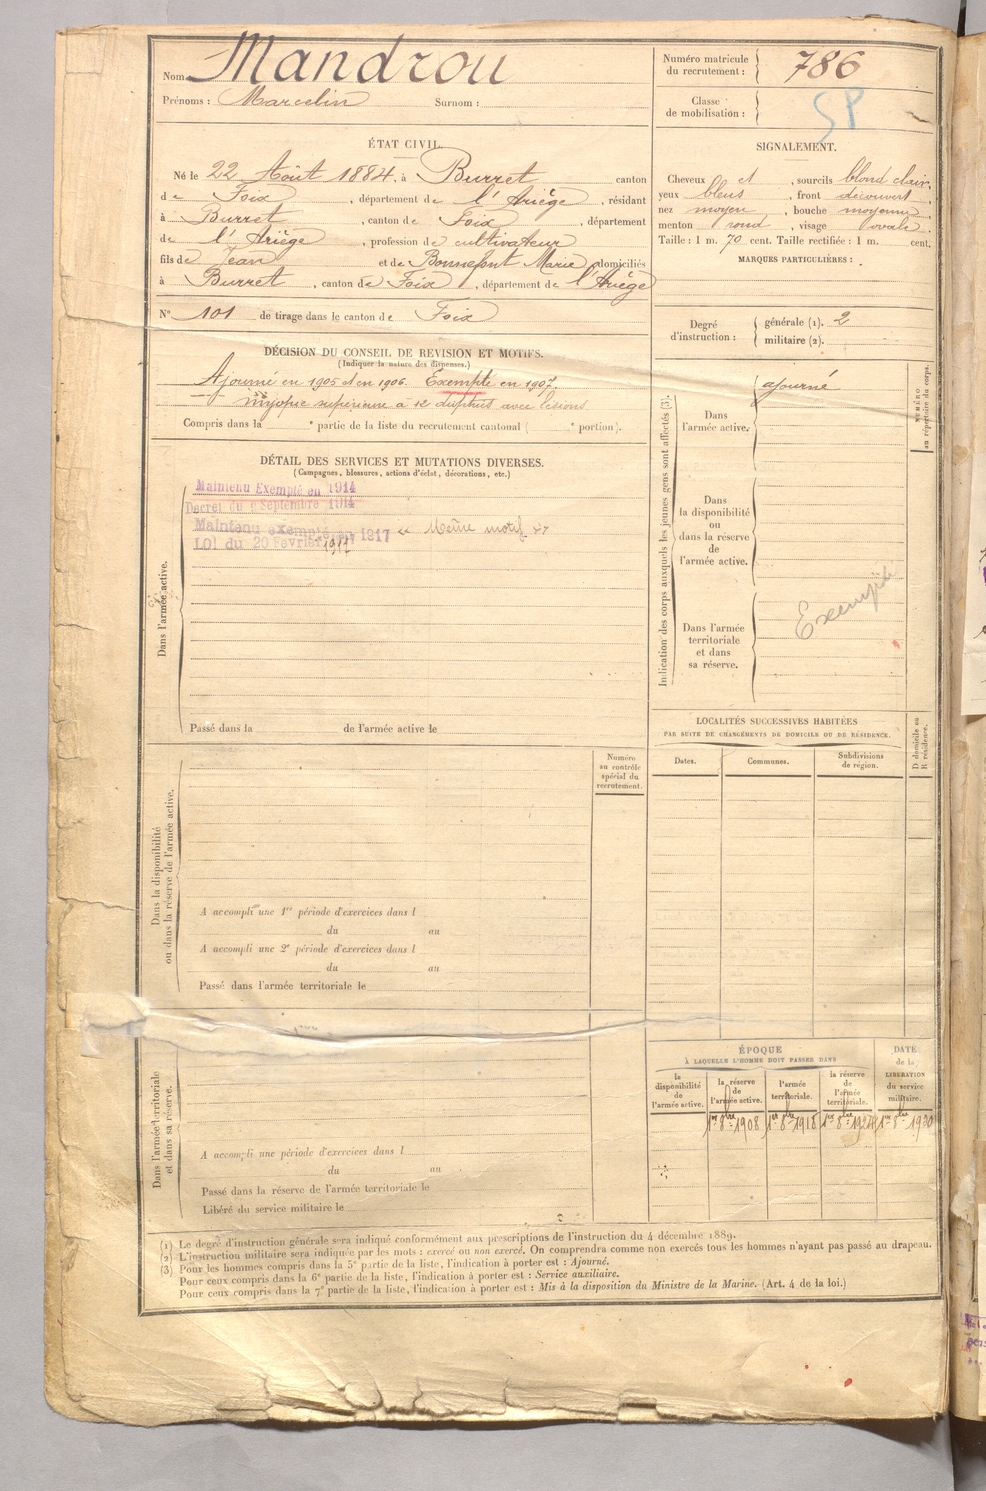 Nom Mandrou
Prénoms : Marcelin Surnom :
Numéro matricule du recrutement : 786
Classe de mobilisation :
SP
ÉTAT CIVIL.
Né le 22 Août 1884, à Burret canton
de Foix, département de l'Ariège, résidant
à Burret, canton de Foix, département
de l'Ariège, profession de cultivateur
fils de Jean et de Bonnefont Marie domiciliés
à Burret, canton de Foix, département de l'Ariège
N° 101 de tirage dans le canton de Foix
SIGNALEMENT.
Cheveux et, sourcils blond clair,
yeux bleus, front découvert,
nez moyen, bouche moyenne,
menton rond, visage ovale.
Taille : 1 m. 70 cent. Taille rectifiée : 1 m. cent.
MARQUES PARTICULIÈRES :
Degré d'instruction : générale (1). 2
militaire (2).
DÉCISION DU CONSEIL DE REVISION ET MOTIFS.
(Indiquer la nature des dispenses.)
Ajourné en 1905 et en 1906. Exempté en 1907.
myopie supérieure à 12 dioptries avec lésions
Compris dans la e partie de la liste du recrutement cantonal ( e portion).
DÉTAIL DES SERVICES ET MUTATIONS DIVERSES.
(Campagnes, blessures, actions d'éclat, décorations, etc.)
Maintenu Exempté en 1914
Décret du 9 Septembre 1914
Maintenu exempté en 1917 « Même motif »
Loi du 20 Février 1917
Dans l'armée active.
Passé dans la de l'armée active le
Indication des corps auxquels les jeunes gens sont affectés (3).
NUMÉRO au répertoire du corps.
Dans l'armée active.
ajourné
Dans la disponibilité ou dans la réserve de l'armée active.
Dans l'armée territoriale et dans sa réserve.
Exempté
LOCALITÉS SUCCESSIVES HABITÉES
PAR SUITE DE CHANGEMENTS DE DOMICILE OU DE RÉSIDENCE.
Dates. Communes. Subdivisions de région.
D domicile ou R résidence.
Numéro au contrôle spécial du recrutement.
Dans la disponibilité ou dans la réserve de l'armée active.
A accompli une 1re période d'exercices dans l
du au
A accompli une 2e période d'exercices dans l
du au
Passé dans l'armée territoriale le
Dans l'armée territoriale et dans sa réserve.
A accompli une période d'exercices dans l
du au
Passé dans la réserve de l'armée territoriale le
Libéré du service militaire le
ÉPOQUE
À LAQUELLE L'HOMME DOIT PASSER DANS
la disponibilité de l'armée active.
la réserve de l'armée active.
l'armée territoriale.
la réserve de l'armée territoriale.
DATE de la LIBÉRATION du service militaire.
1er 8bre 1908 1er 8bre 1918 1er 8bre 1924 1er 8bre 1930
(1) Le degré d'instruction générale sera indiqué conformément aux prescriptions de l'instruction du 4 décembre 1889.
(2) L'instruction militaire sera indiquée par les mots : exercé ou non exercé. On comprendra comme non exercés tous les hommes n'ayant pas passé au drapeau.
(3) Pour les hommes compris dans la 5e partie de la liste, l'indication à porter est : Ajourné.
Pour ceux compris dans la 6e partie de la liste, l'indication à porter est : Service auxiliaire.
Pour ceux compris dans la 7e partie de la liste, l'indication à porter est : Mis à la disposition du Ministre de la Marine. (Art. 4 de la loi.)